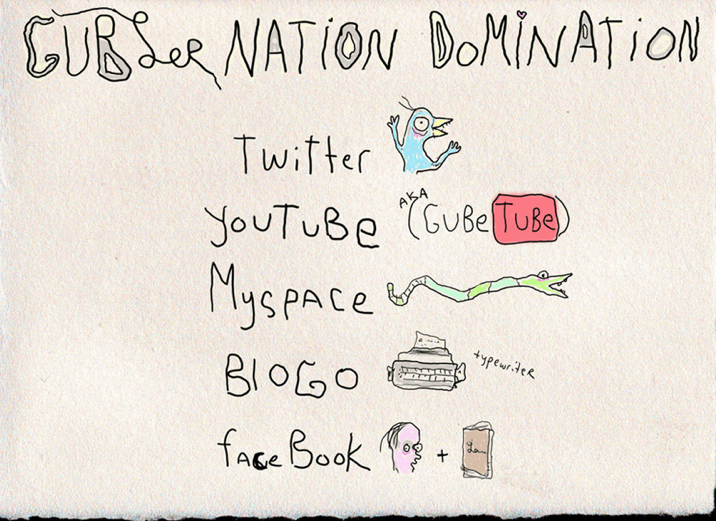 GUBSer NATiON DoMiNATiON
Twitter
YouTuBe (AKA GuBe TuBe)
MyspAce
BloGo typewriter
fAce Book +